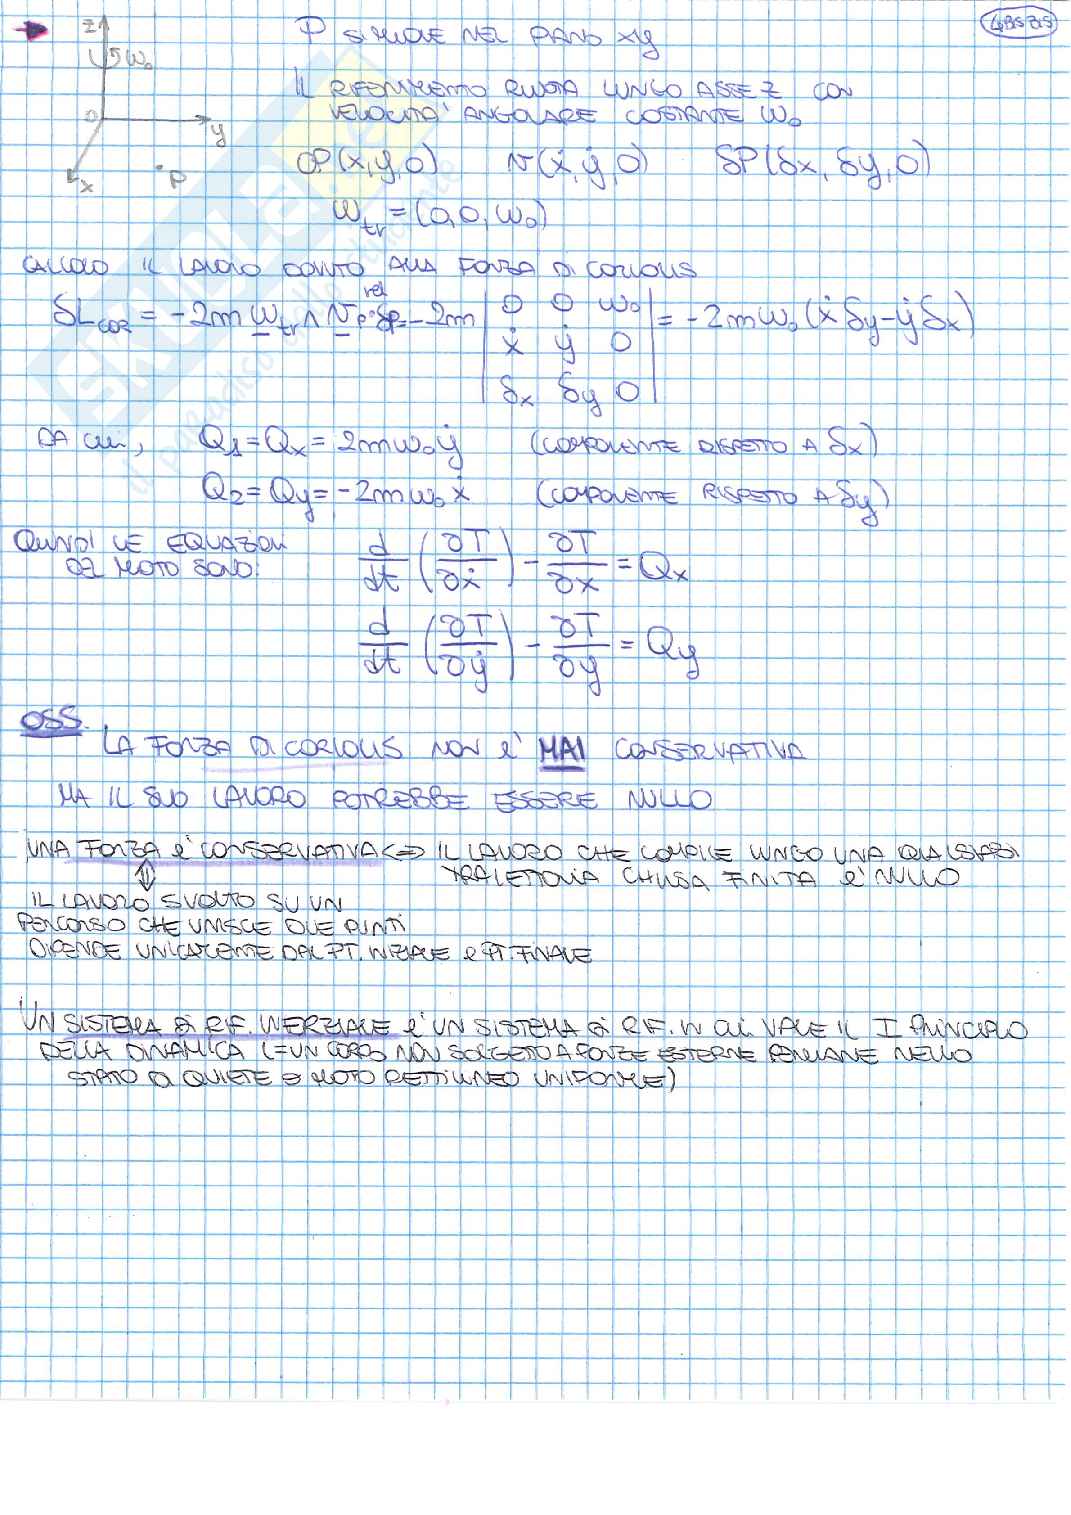 4BSZS
P SI MUOVE NEL PIANO xy
z
ω₀
IL RIFERIMENTO RUOTA LUNGO ASSE Z CON
VELOCITA' ANGOLARE COSTANTE ω₀
O
y
x
P
OP(x,y,0) v(ẋ,ẏ,0) δP(δx,δy,0)
ω_tr=(0,0,ω₀)
CALCOLO IL LAVORO DOVUTO ALLA FORZA DI CORIOLIS
δL_cor = -2m ω_tr ∧ v_P^rel · δP = -2m | 0 0 ω₀ | = -2mω₀(ẋδy-ẏδx)
| ẋ ẏ 0 |
| δx δy 0 |
DA CUI, Q₁=Qx=2mω₀ẏ (COMPONENTE RISPETTO A δx)
Q₂=Qy=-2mω₀ẋ (COMPONENTE RISPETTO A δy)
QUINDI LE EQUAZIONI
DEL MOTO SONO:
d/dt (∂T/∂ẋ) - ∂T/∂x = Qx
d/dt (∂T/∂ẏ) - ∂T/∂y = Qy
OSS.
LA FORZA DI CORIOLIS NON è MAI CONSERVATIVA
MA IL SUO LAVORO POTREBBE ESSERE NULLO
UNA FORZA è CONSERVATIVA <=> IL LAVORO CHE COMPIE LUNGO UNA QUALSIASI
TRAIETTORIA CHIUSA FINITA è NULLO
⇕
IL LAVORO SVOLTO SU UN
PERCORSO CHE UNISCE DUE PUNTI
DIPENDE UNICAMENTE DAL PT. INIZIALE e PT. FINALE
UN SISTEMA di RIF. INERZIALE è UN SISTEMA di RIF. IN CUI VALE IL I PRINCIPIO
DELLA DINAMICA (=UN CORPO NON SOGGETTO A FORZE ESTERNE RIMANE NELLO
STATO DI QUIETE O MOTO RETTILINEO UNIFORME)